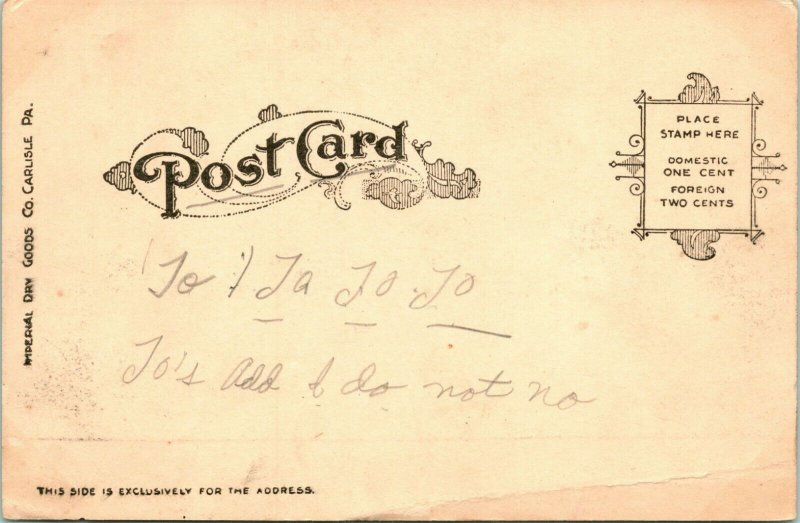 IMPERIAL DRY GOODS CO. CARLISLE PA.
POST CARD
PLACE
STAMP HERE
DOMESTIC
ONE CENT
FOREIGN
TWO CENTS
To Ja Jo Jo
Jo's Add I do not no
THIS SIDE IS EXCLUSIVELY FOR THE ADDRESS.